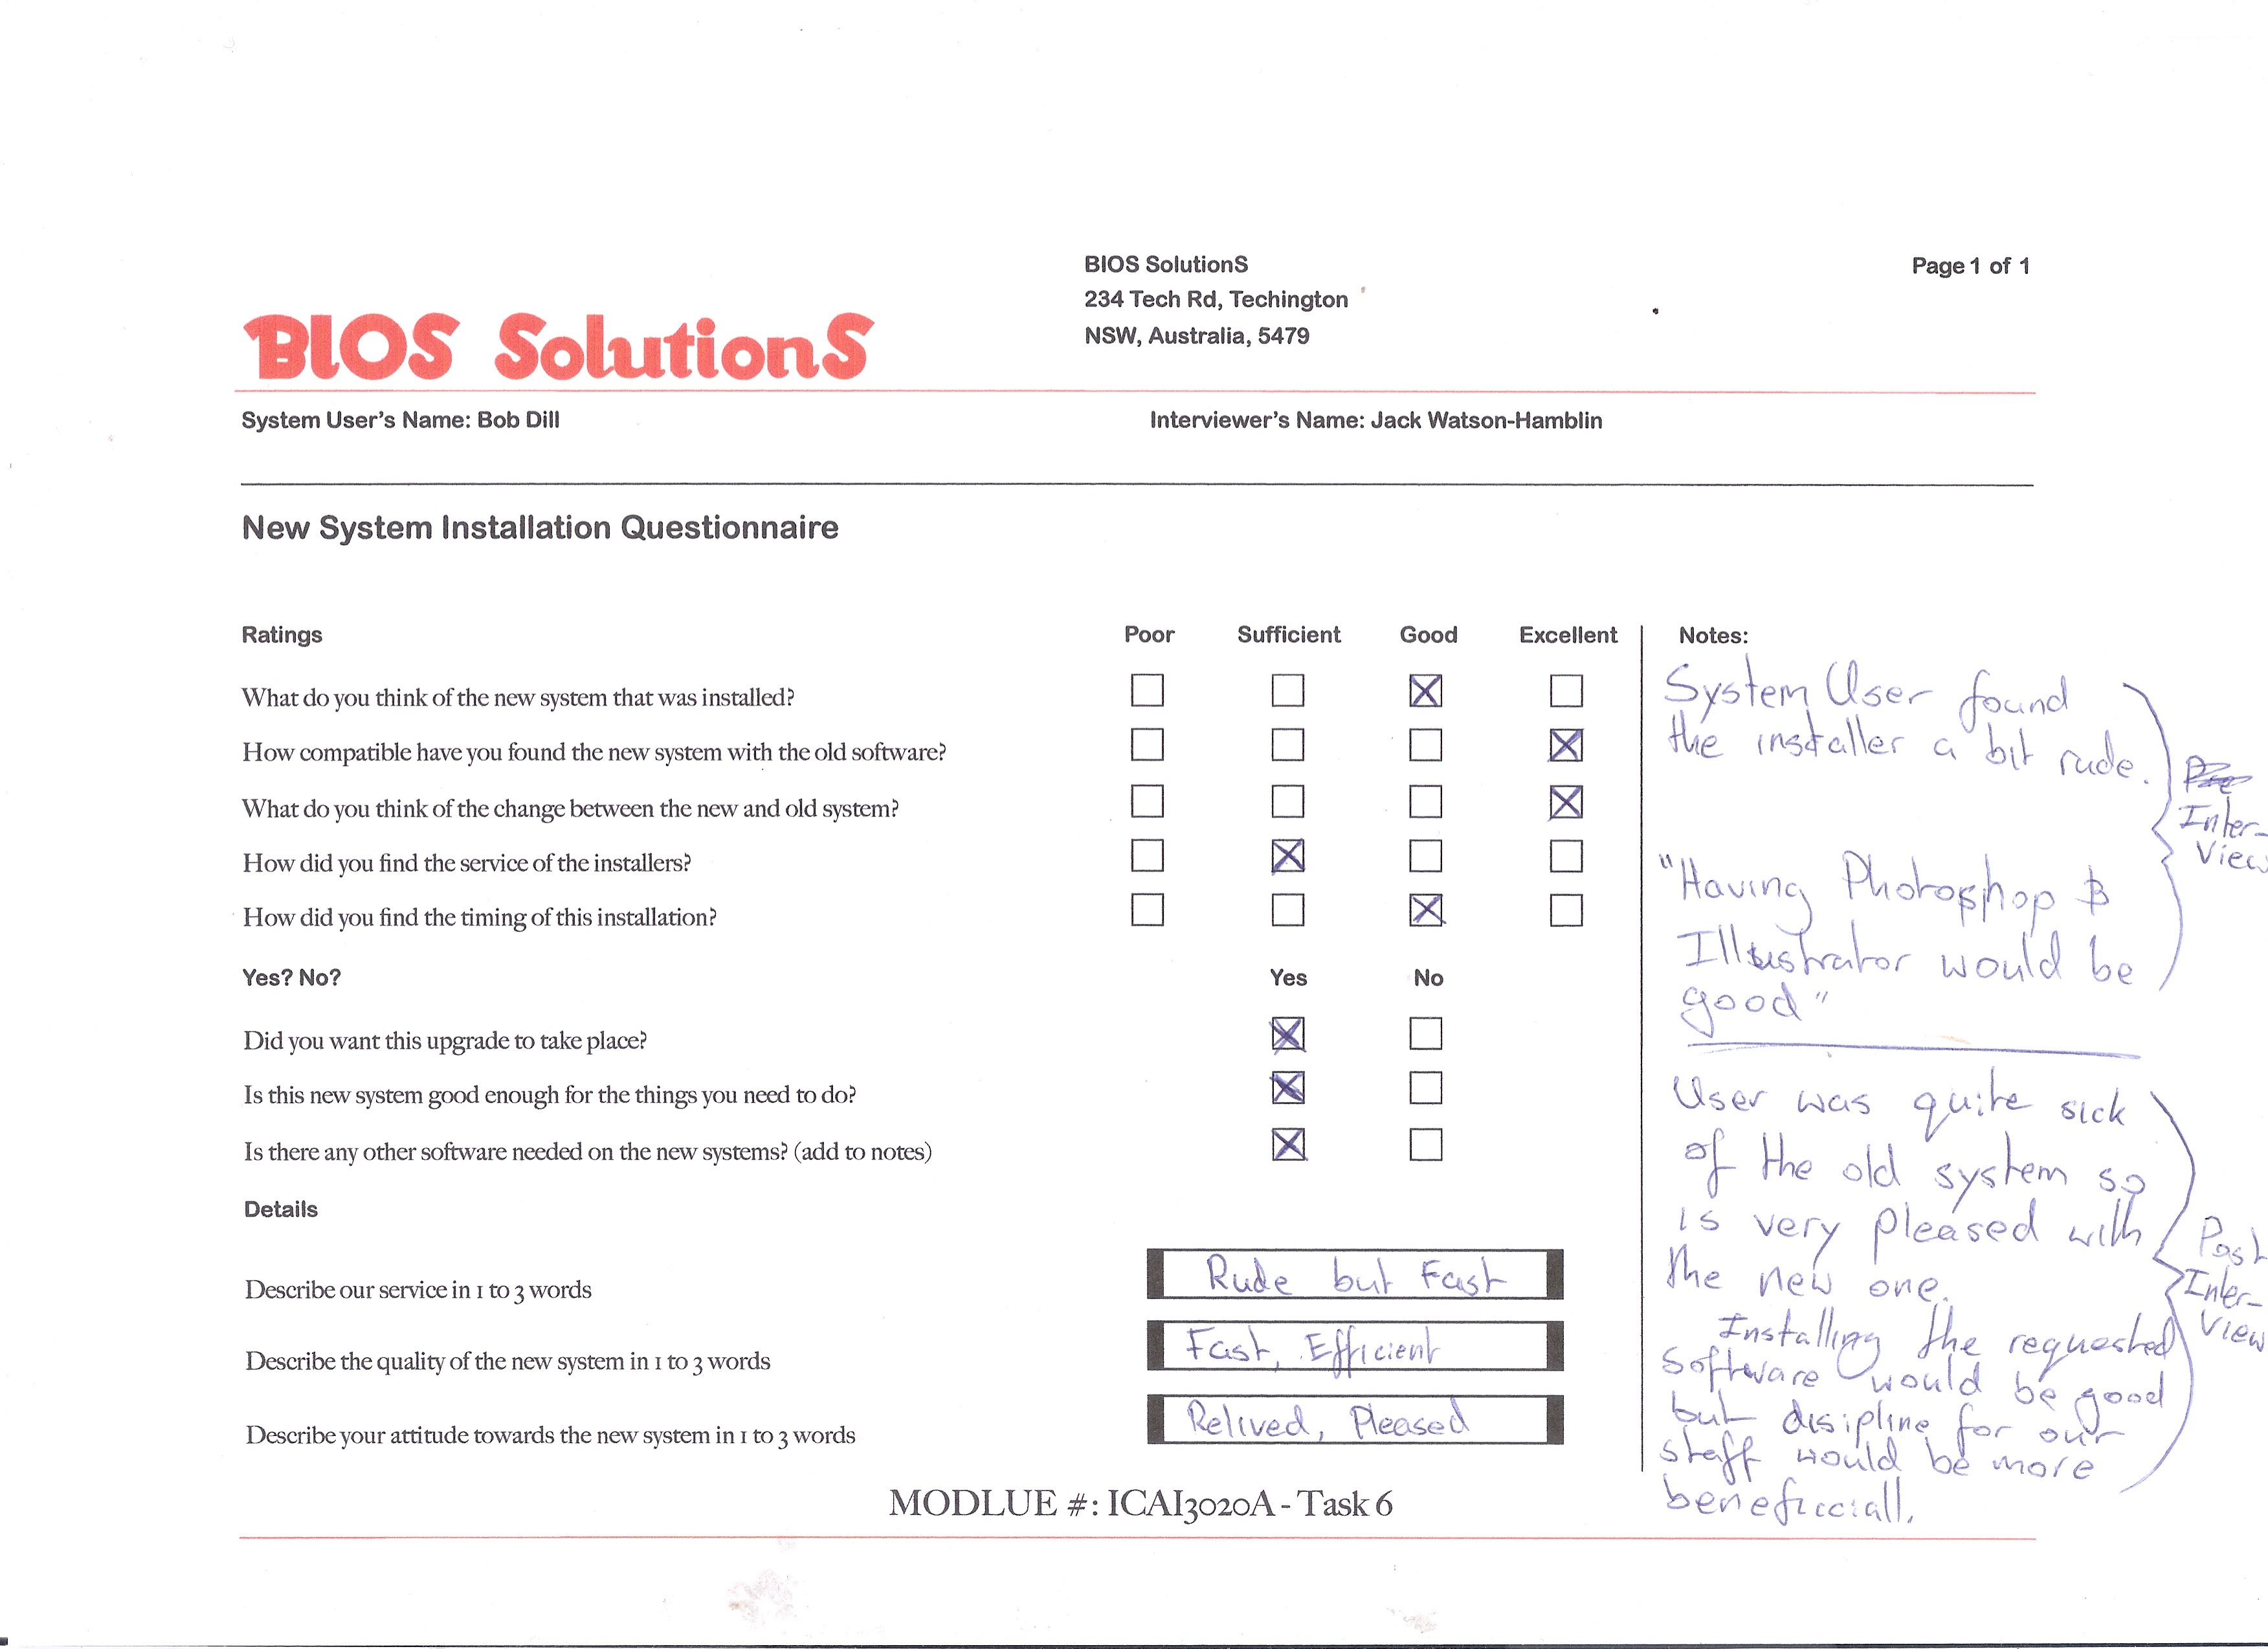 BIOS SolutionS
234 Tech Rd, Techington
NSW, Australia, 5479
Page 1 of 1
BIOS SolutionS
System User's Name: Bob Dill
Interviewer's Name: Jack Watson-Hamblin
New System Installation Questionnaire
Ratings Poor Sufficient Good Excellent
What do you think of the new system that was installed?
How compatible have you found the new system with the old software?
What do you think of the change between the new and old system?
How did you find the service of the installers?
How did you find the timing of this installation?
Yes? No? Yes No
Did you want this upgrade to take place?
Is this new system good enough for the things you need to do?
Is there any other software needed on the new systems? (add to notes)
Details
Describe our service in 1 to 3 words
Rude but Fast
Describe the quality of the new system in 1 to 3 words
Fast, Efficient
Describe your attitude towards the new system in 1 to 3 words
Relived, Pleased
Notes:
System User found
the installer a bit rude.
"Having Photoshop &
Illustrator would be
good"
Inter-
View
User was quite sick
of the old system so
is very pleased with
the new one.
Installing the requested
software would be good
but disipline for our
staff would be more
beneficciall.
Post
Inter-
View
MODLUE #: ICAI3020A - Task 6